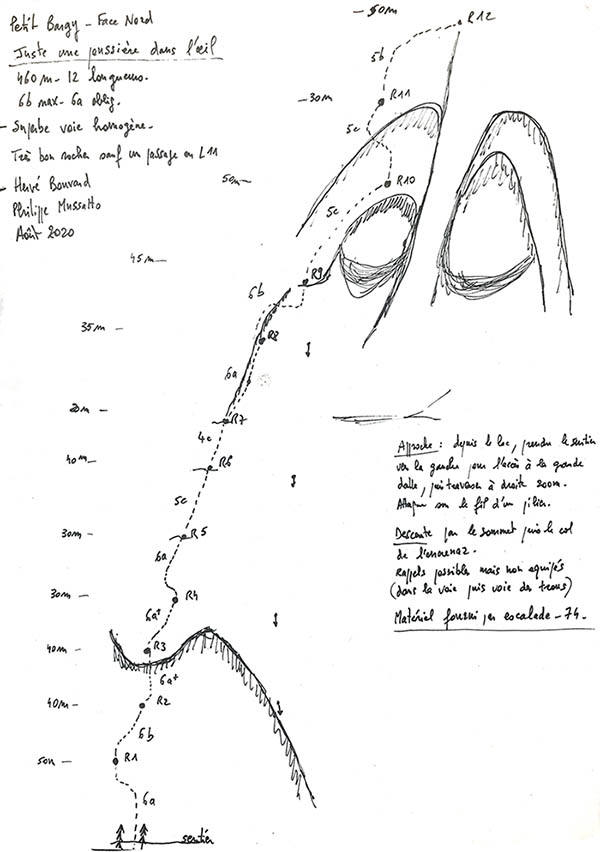 Petit Bargy - Face Nord
Juste une poussière dans l'œil
460m - 12 longueurs.
6b max - 6a oblig.
- Superbe voie homogène -
Très bon rocher sauf un passage en L11
- Hervé Bouvard
Philippe Mussatto
Août 2020
- 50m
R12
5b
- 30m
R11
5c
50m -
R10
5c
45m -
R9
6b
35m -
R8
6a
20m -
R7
4c
40m -
R6
5c
30m -
R5
6a
30m -
R4
6a+
40m -
R3
6a+
40m -
R2
6b
50m -
R1
6a
sentier
Approche : depuis le lac, prendre le sentier
vers la gauche pour l'accès à la grande
dalle, puis traverser à droite 200m.
Attaque sur le fil d'un pilier.
Descente par le sommet puis le col
de l'encrenaz.
Rappels possibles mais non équipés
(dans la voie puis voie des trous)
Matériel fourni par escalade - 74.